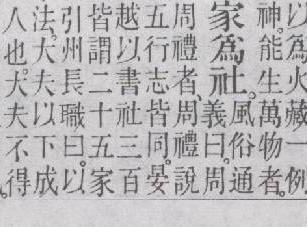 以爲火藏一例
神。能生萬物者。
家爲社。風俗通
義曰。周
周禮者、周禮說
五行志皆同。晏
越以書社三百
皆謂二十五家
引州長職曰。以
法。大夫以下成
人也。大夫不得